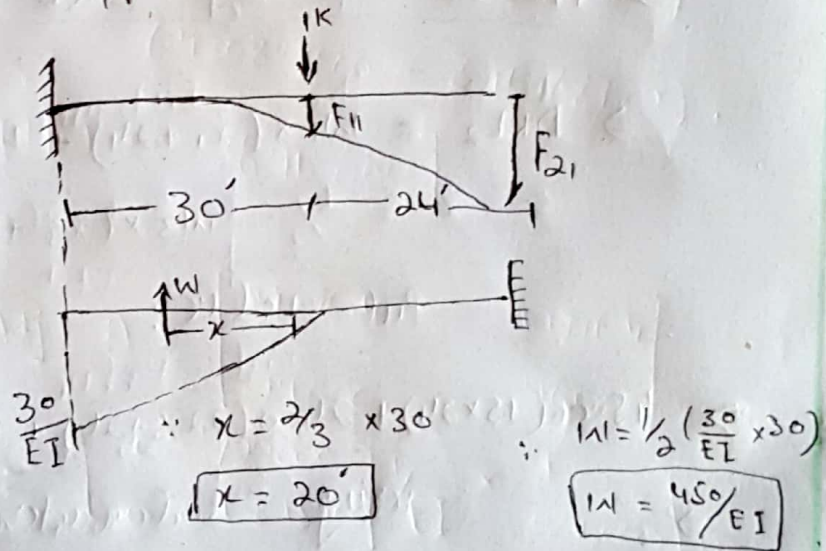 1K
F11
F21
30' 24'
W
x
30/EI
∵ x = 2/3 × 30
x = 20'
∴ W = 1/2 (30/EI × 30)
W = 450/EI